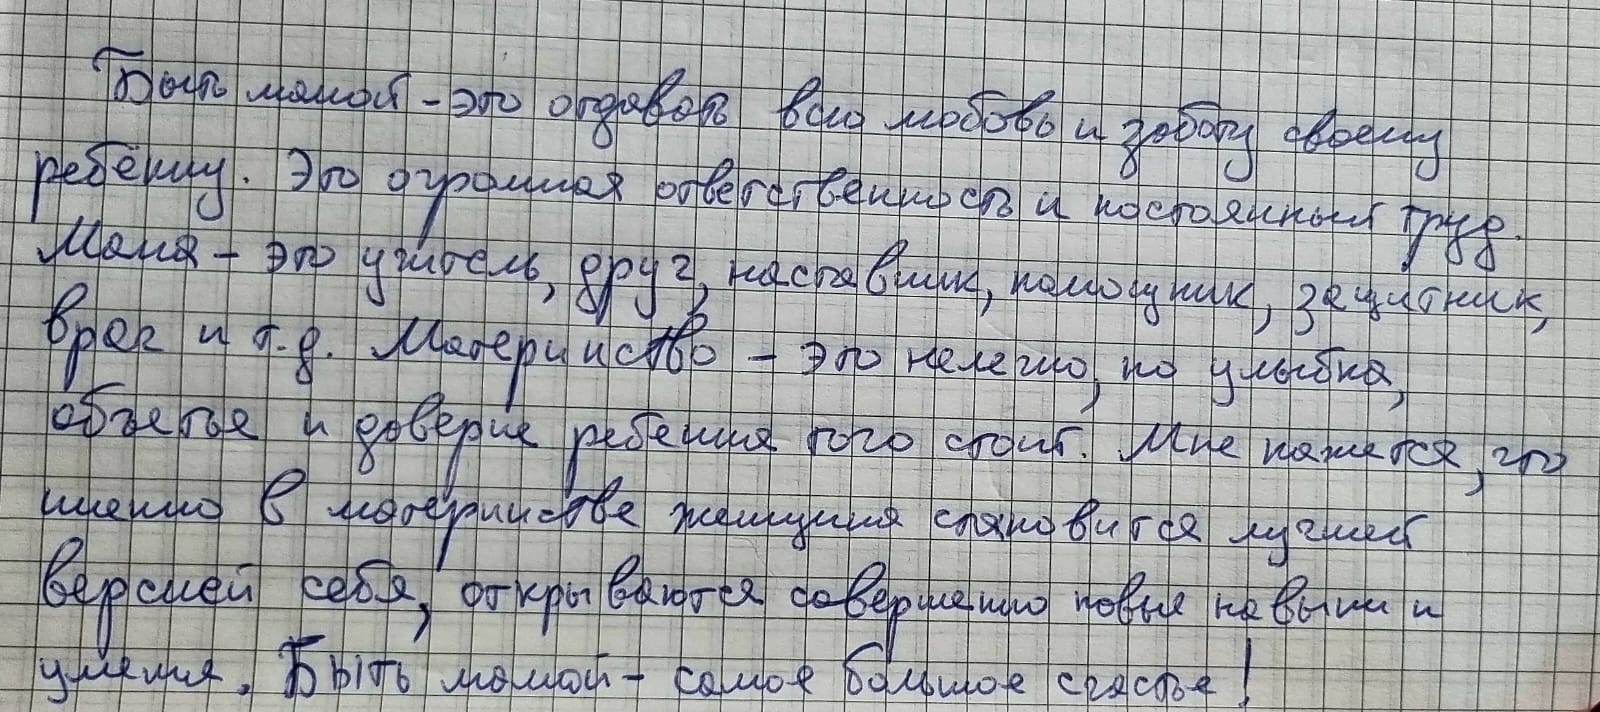 Быть мамой - это отдавать всю любовь и заботу своему
ребёнку. Это огромная ответственность и постоянный труд.
Мама - это учитель, друг, наставник, помощник, защитник,
врач и т.д. Материнство - это нелегко, но улыбка,
объятья и доверие ребенка того стоит. Мне кажется, что
именно в материнстве женщина становится лучшей
версией себя, открываются совершенно новые навыки и
умения. Быть мамой - самое большое счастье!